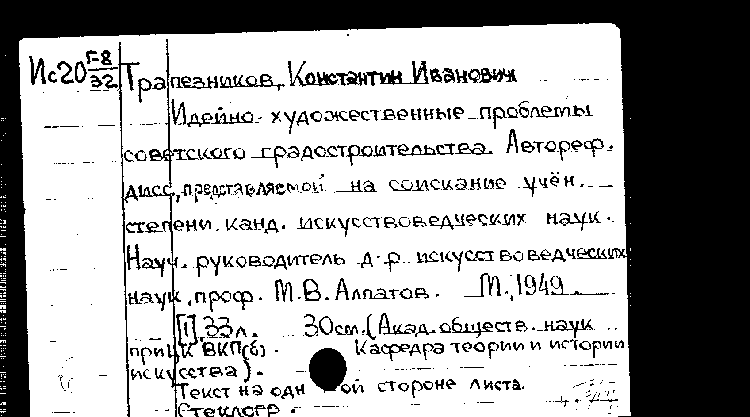 Ис20 Г-8/32 Трапезников, Константин Иванович
Идейно-художественные проблемы
советского градостроительства. Автореф.
дисс., представляемой на соискание учён.
степени канд. искусствоведческих наук.
Науч. руководитель д-р искусствоведческих
наук, проф. М.В. Алпатов. М., 1949.
[1], 33 л. 30 см. (Акад. обществ. наук
при ЦК ВКП(б). Кафедра теории и истории
искусства).
Текст на одн ой стороне листа.
Стеклогр.